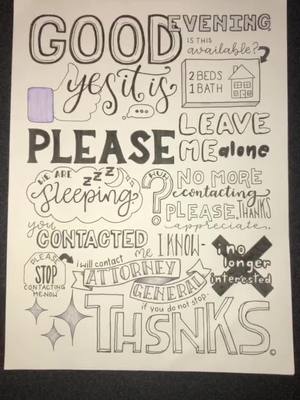 GOOD EVENING
IS THIS
available?
yes it is
2 BEDS
1 BATH
PLEASE LEAVE
ME alone
WE ARE
zzz
Sleeping
HUN?
NO MORE
contacting
PLEASE, THANKS
appreciate.
you
CONTACTED me I KNOW-
PLEASE
STOP
CONTACTING
ME NOW
i will contact
ATTORNEY
GENERAL
if you do not stop.
i no
longer
interested
THSNKS
©